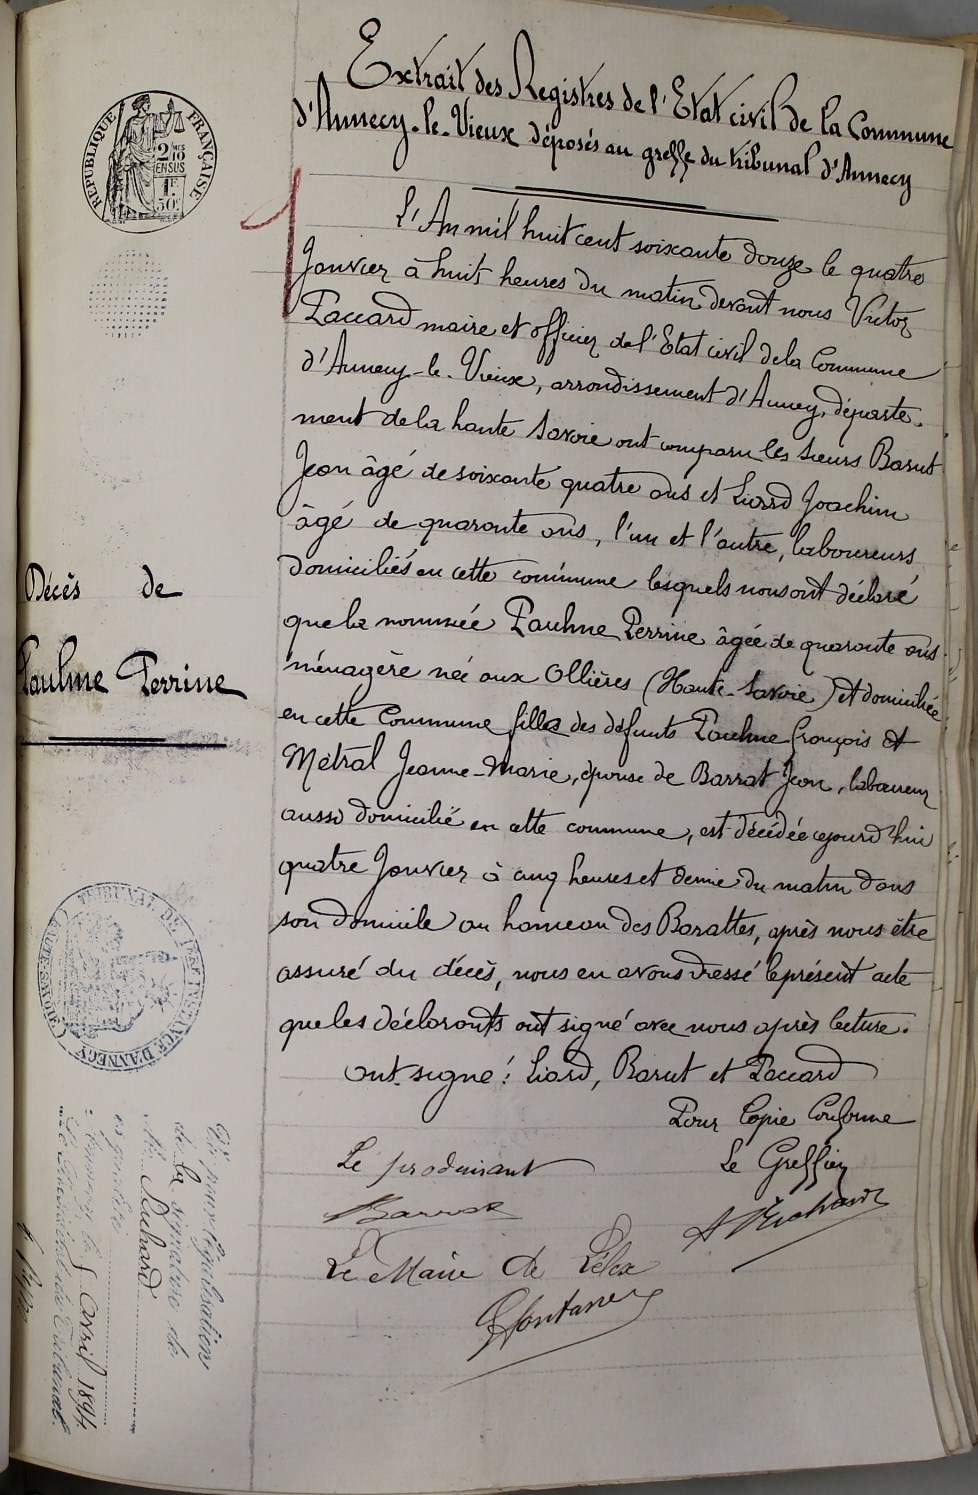 Extrait des Registres de l'Etat civil de la Commune
d'Annecy-le-Vieux déposés au greffe du tribunal d'Annecy
RÉPUBLIQUE FRANÇAISE
2/10
EN SUS
1F
50c
L'An mil huit cent soixante douze le quatre
Janvier à huit heures du matin devant nous Victor
Paccard maire et officier de l'Etat civil de la Commune
d'Annecy-le-Vieux, arrondissement d'Annecy, départe-
ment de la haute Savoie ont comparu les sieurs Barut
Jean âgé de soixante quatre ans et Liard Joachim
âgé de quarante ans, l'un et l'autre, laboureurs
domiciliés en cette commune lesquels nous ont déclaré
que la nommée Paulme Perrine âgée de quarante ans
ménagère née aux Ollières (Haute-Savoie) et domiciliée
en cette Commune filles des défunts Paulme François et
Métral Jeanne-Marie, épouse de Barrat Jean, laboureur
aussi domicilié en cette commune, est décédée cejourd'hui
quatre Janvier à cinq heures et demie du matin dans
son domicile au hameau des Barattes, après nous être
assuré du décès, nous en avons dressé le présent acte
que les déclarants ont signé avec nous après lecture.
ont signé: Liard, Barut et Paccard
Pour Copie Conforme
Le Greffier
Le produisant
Barrat
Le Maire de Lélex
Décès de
Paulme Perrine
TRIBUNAL DE 1ERE INSTANCE D'ANNECY
(HAUTE-SAVOIE)
Vu pour légalisation
de la signature de
M.
Annecy le 5 avril 1894
Le Président du Tribunal.